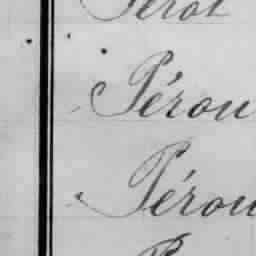 Pérot
Pérou
Pérou